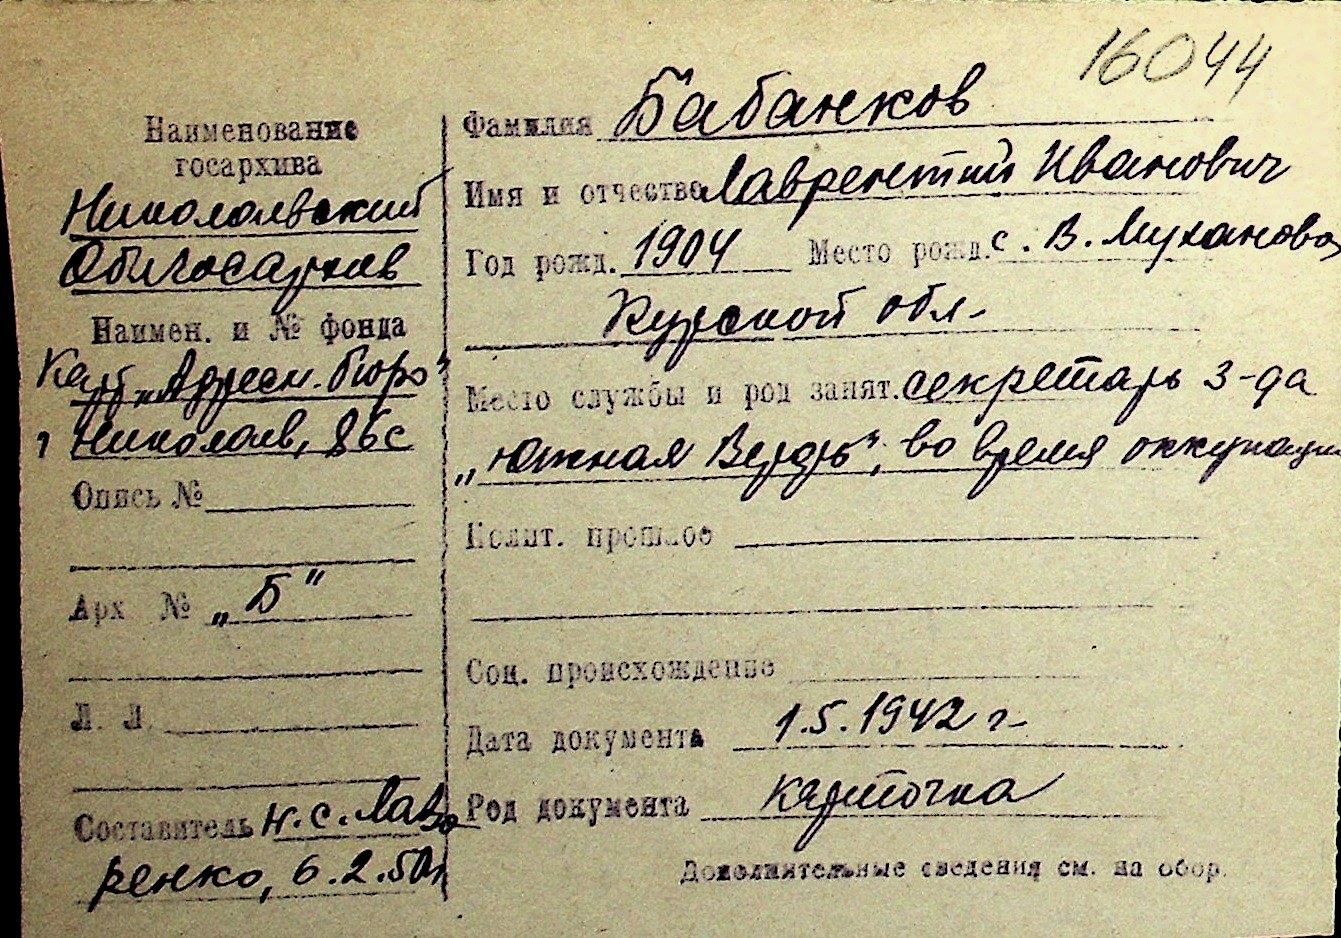 16044
Наименование
госархива
Николаевский
Облгосархив
Наимен. и № фонда
Карт. „Адресн. бюро"
г Николаев, 86с
Опись №
Арх № „Б"
Л. Л.
Составитель Н. С. Лав
ренко, 6.2.50г
Фамилия Бабанков
Имя и отчество Лаврентий Иванович
Год рожд. 1904 Место рожд. с. В. Муханово
Курской обл.
Место службы и род занят. секретарь з-да
„Южная Верфь", во время оккупации
Полит. прошлое
Соц. происхождение
Дата документа 1.5.1942 г
Род документа карточка
Дополнительные сведения см. на обор.